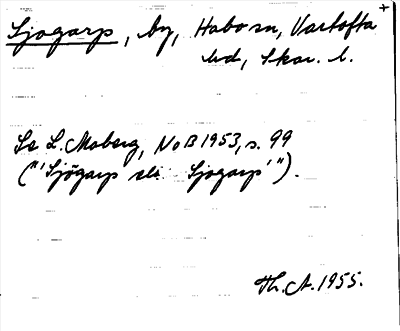 +
Sjogarp, by, Habo sn, Vartofta
hd, Skar. l.
Se L. Moberg, NoB 1953, s. 99
("'Sjögarp' el. 'Sjogarp'").
Th. A. 1955.